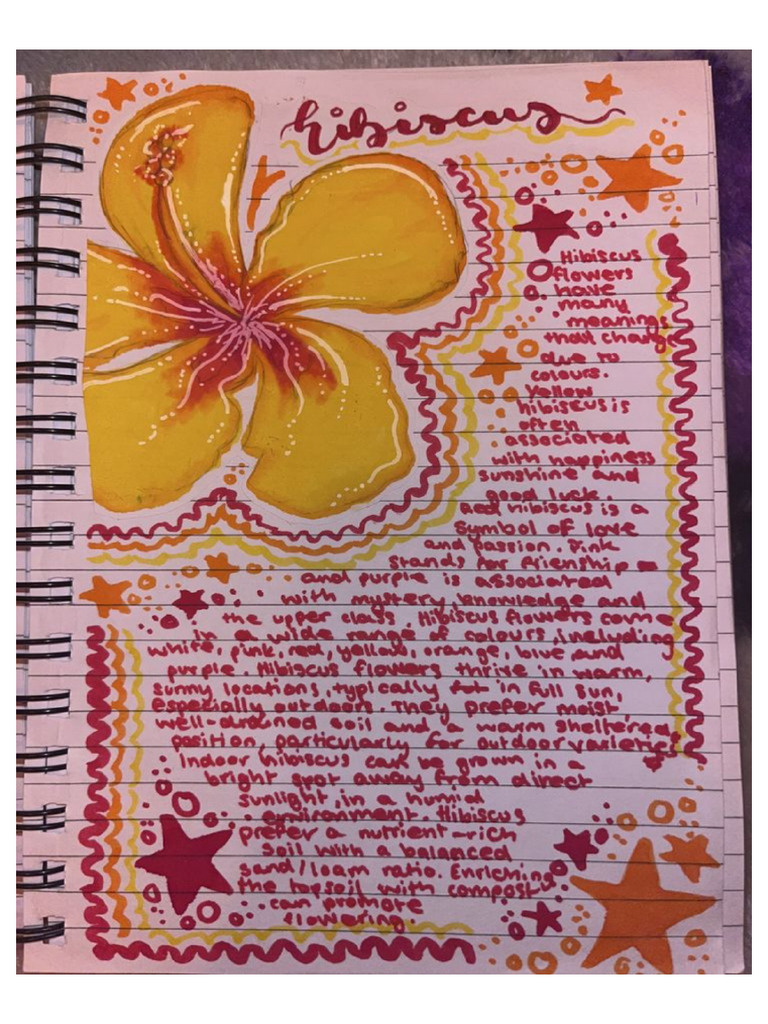 hibiscus
Hibiscus
flowers
have
many
meanings
that change
due to
colours.
Yellow
hibiscus is
often
associated
with happiness
sunshine and
good luck.
Red hibiscus is a
symbol of love
and passion. Pink
stands for frienship
and purple is associated
with mystery, knowledge and
the upper class. Hibiscus flowers come
in a wide range of colours, including
white, pink, red, yellow, orange, blue and
purple. Hibiscus flowers thrive in warm,
sunny locations, typically in full sun,
especially outdoors. They prefer moist
well-drained soil and a warm sheltered
position, particularly for outdoor varieties.
Indoor hibiscus can be grown in a
bright spot away from direct
sunlight in a humid
environment. Hibiscus
prefer a nutrient-rich
soil with a balanced
sand/loam ratio. Enriching
the topsoil with compost
can promote
flowering.